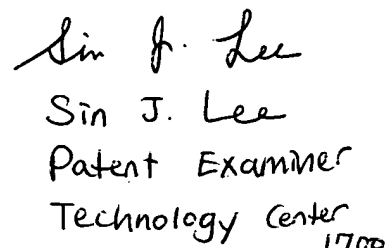 Sin J. Lee
Sin J. Lee
Patent Examiner
Technology Center
1700